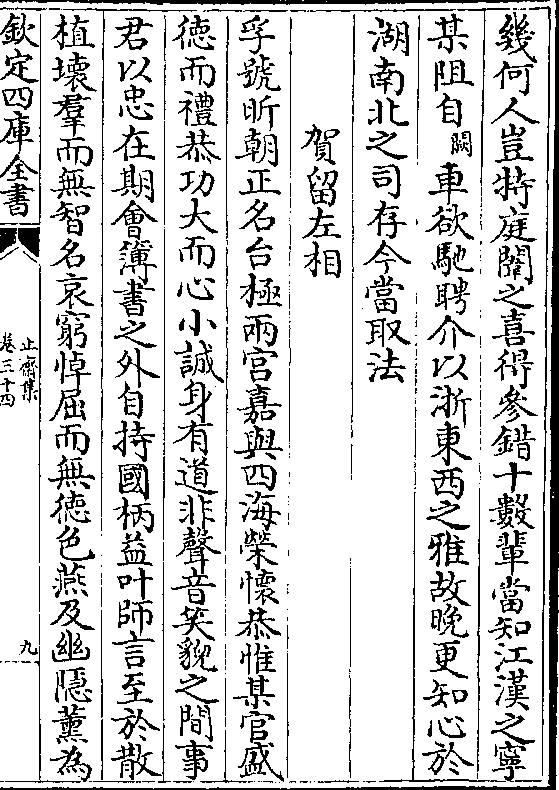 幾何人豈特庭闈之喜得參錯十數輩當知江漢之寧
某阻自闕車欲馳聘介以浙東西之雅故晚更知心於
湖南北之司存今當取法
賀留左相
孚號昕朝正名台極兩宮嘉與四海榮懷恭惟某官盛
徳而禮恭功大而心小誠身有道非聲音笑貌之間事
君以忠在期會簿書之外自持國柄益叶師言至於散
植壞羣而無智名哀窮悼屈而無徳色燕及幽隠薰為
欽定四庫全書
止齋集
卷三十四
九